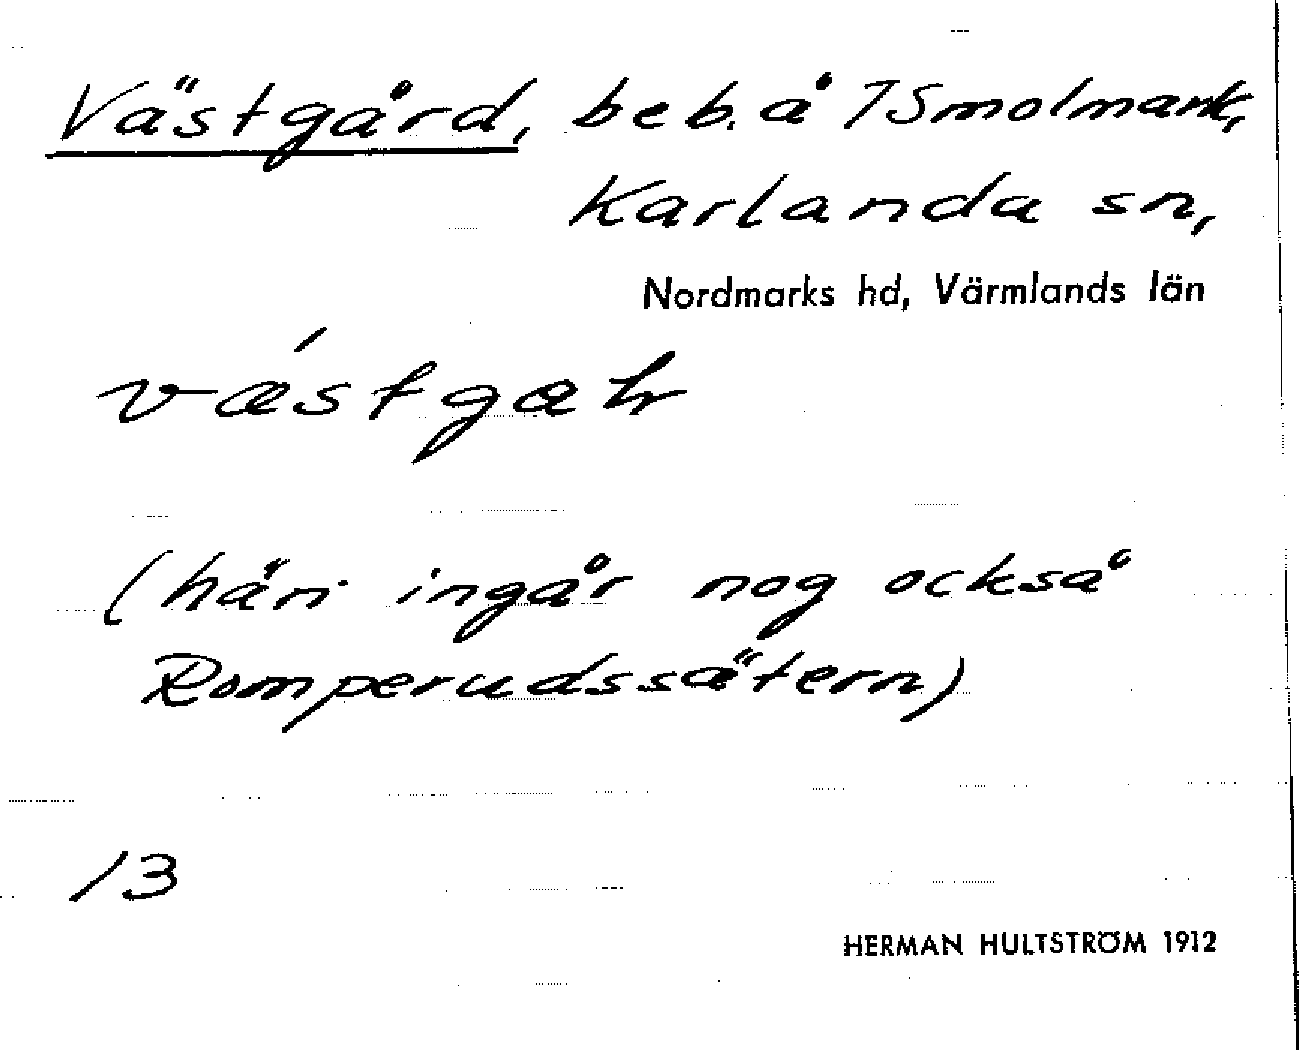 Västgård, beb. å Tsmolmark,
Karlanda sn,
Nordmarks hd, Värmlands län
(häri ingår nog också
Romperudssätern)
13
HERMAN HULTSTRÖM 1912